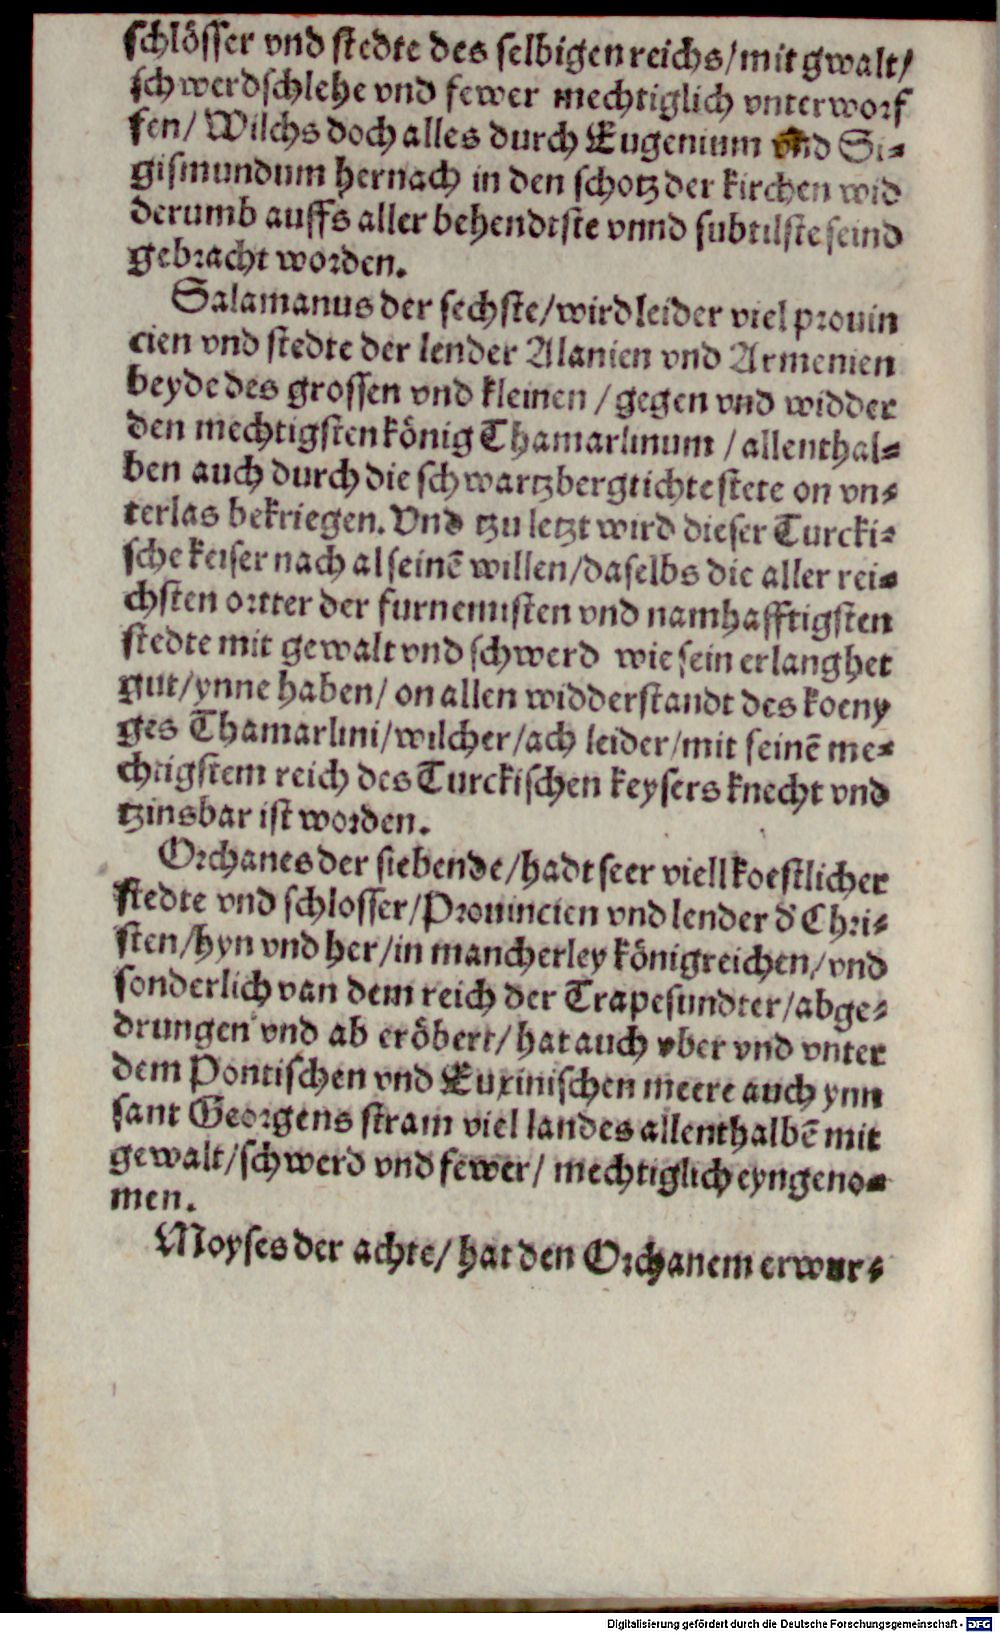 schlösser vnd stedte des selbigen reichs/mit gwalt/
schwerdschlehe vnd fewer mechtiglich vnterworf
fen/ Wilchs doch alles durch Eugenium vnd Si-
gismundum hernach in den schotz der kirchen wid
derumb auffs aller behendtste vnnd subtilste seind
gebracht worden.
Salamanus der sechste/wird leider viel prouin
cien vnd stedte der lender Alanien vnd Armenien
beyde des grossen vnd kleinen /gegen vnd widder
den mechtigsten könig Thamarlinum /allenthal-
ben auch durch die schwartzbergtichte stete on vn-
terlas bekriegen. Vnd tzu letzt wird dieser Turcki-
sche keiser nach al seinē willen/daselbs die aller rei-
chsten ortter der furnemisten vnd namhafftigsten
stedte mit gewalt vnd schwerd wie sein erlanghet
gut/ynne haben/ on allen widderstandt des koeny
ges Thamarlini/wilcher/ach leider/mit seinē me-
chtigstem reich des Turckischen keysers knecht vnd
tzinsbar ist worden.
Orchanes der siebende/hadt seer viell koestlicher
stedte vnd schlosser/Prouincien vnd lender d' Chri-
sten/hyn vnd her/in mancherley königreichen/vnd
sonderlich van dem reich der Trapesundter/abge-
drungen vnd ab eröbert/hat auch vber vnd vnter
dem Pontischen vnd Euxinischen meere auch ynn
sant Georgens stram viel landes allenthalbē mit
gewalt/schwerd vnd fewer/ mechtiglich eyngeno-
men.
Moyses der achte/ hat den Orchanem erwur-
Digitalisierung gefördert durch die Deutsche Forschungsgemeinschaft - DFG